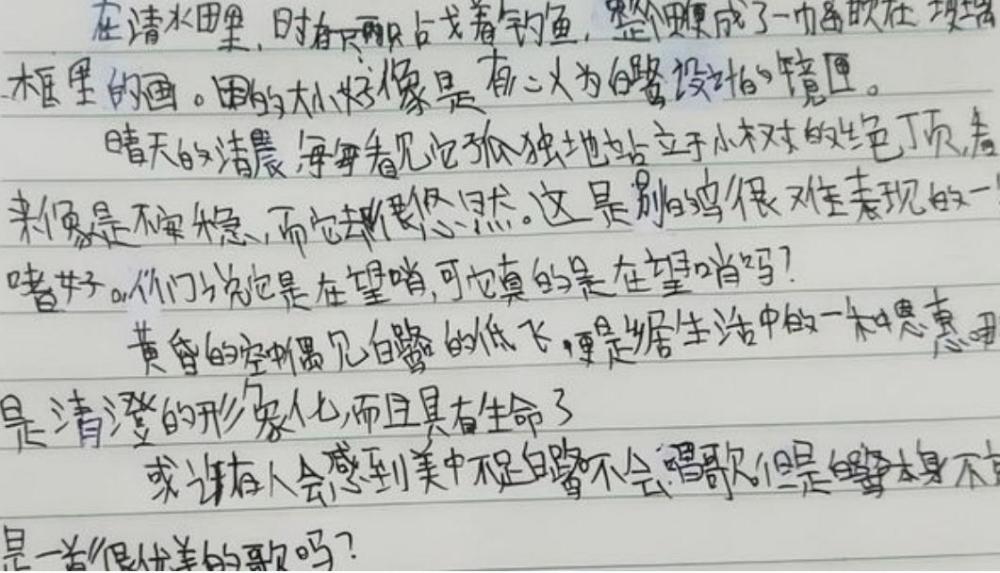 在清水田里,时有只两只占戈着钓鱼,整个田便成了一幅嵌在玻璃
框里的画。田的大小好像是有心人为白鹭设计的镜匣。
晴天的清晨,每每看见它孤独地站立于小树的绝顶,看
来像是不安稳,而它却很悠然。这是别的鸟很难表现的一
嗜好。人们说它是在望哨,可它真的是在望哨吗?
黄昏的空中偶见白鹭的低飞,更是居生活中的一种恩惠。
是清澄的形象化,而且具有生命了
或许有人会感到美中不足白鹭不会唱歌。但是白鹭本身不
是一首很优美的歌吗?